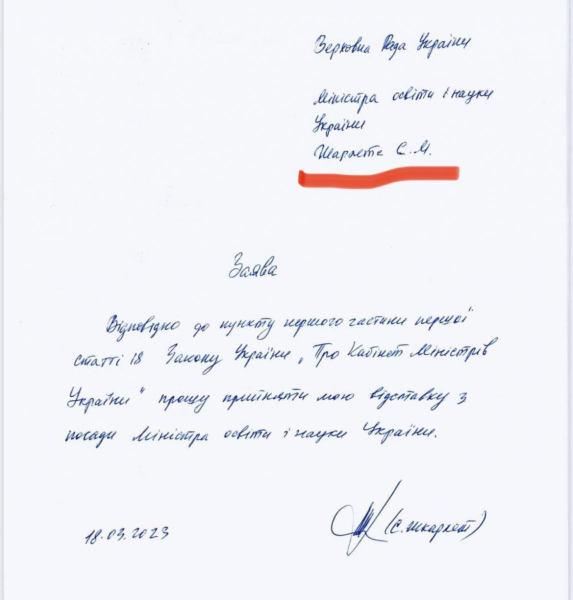 Верховна Рада України
Міністра освіти і науки
України
Шкарлета С.М.
Заява
Відповідно до пункту першого частини першої
статті 18 Закону України „Про Кабінет Міністрів
України“ прошу прийняти мою відставку з
посади Міністра освіти і науки України.
18.03.2023
(С. Шкарлет)